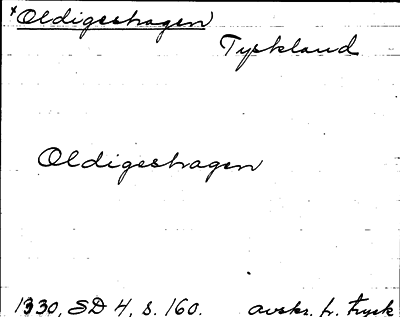 *Oldigeshagen
Tyskland
Oldigeshagen
1330, SD 4, s. 160. avskr. fr. tryck